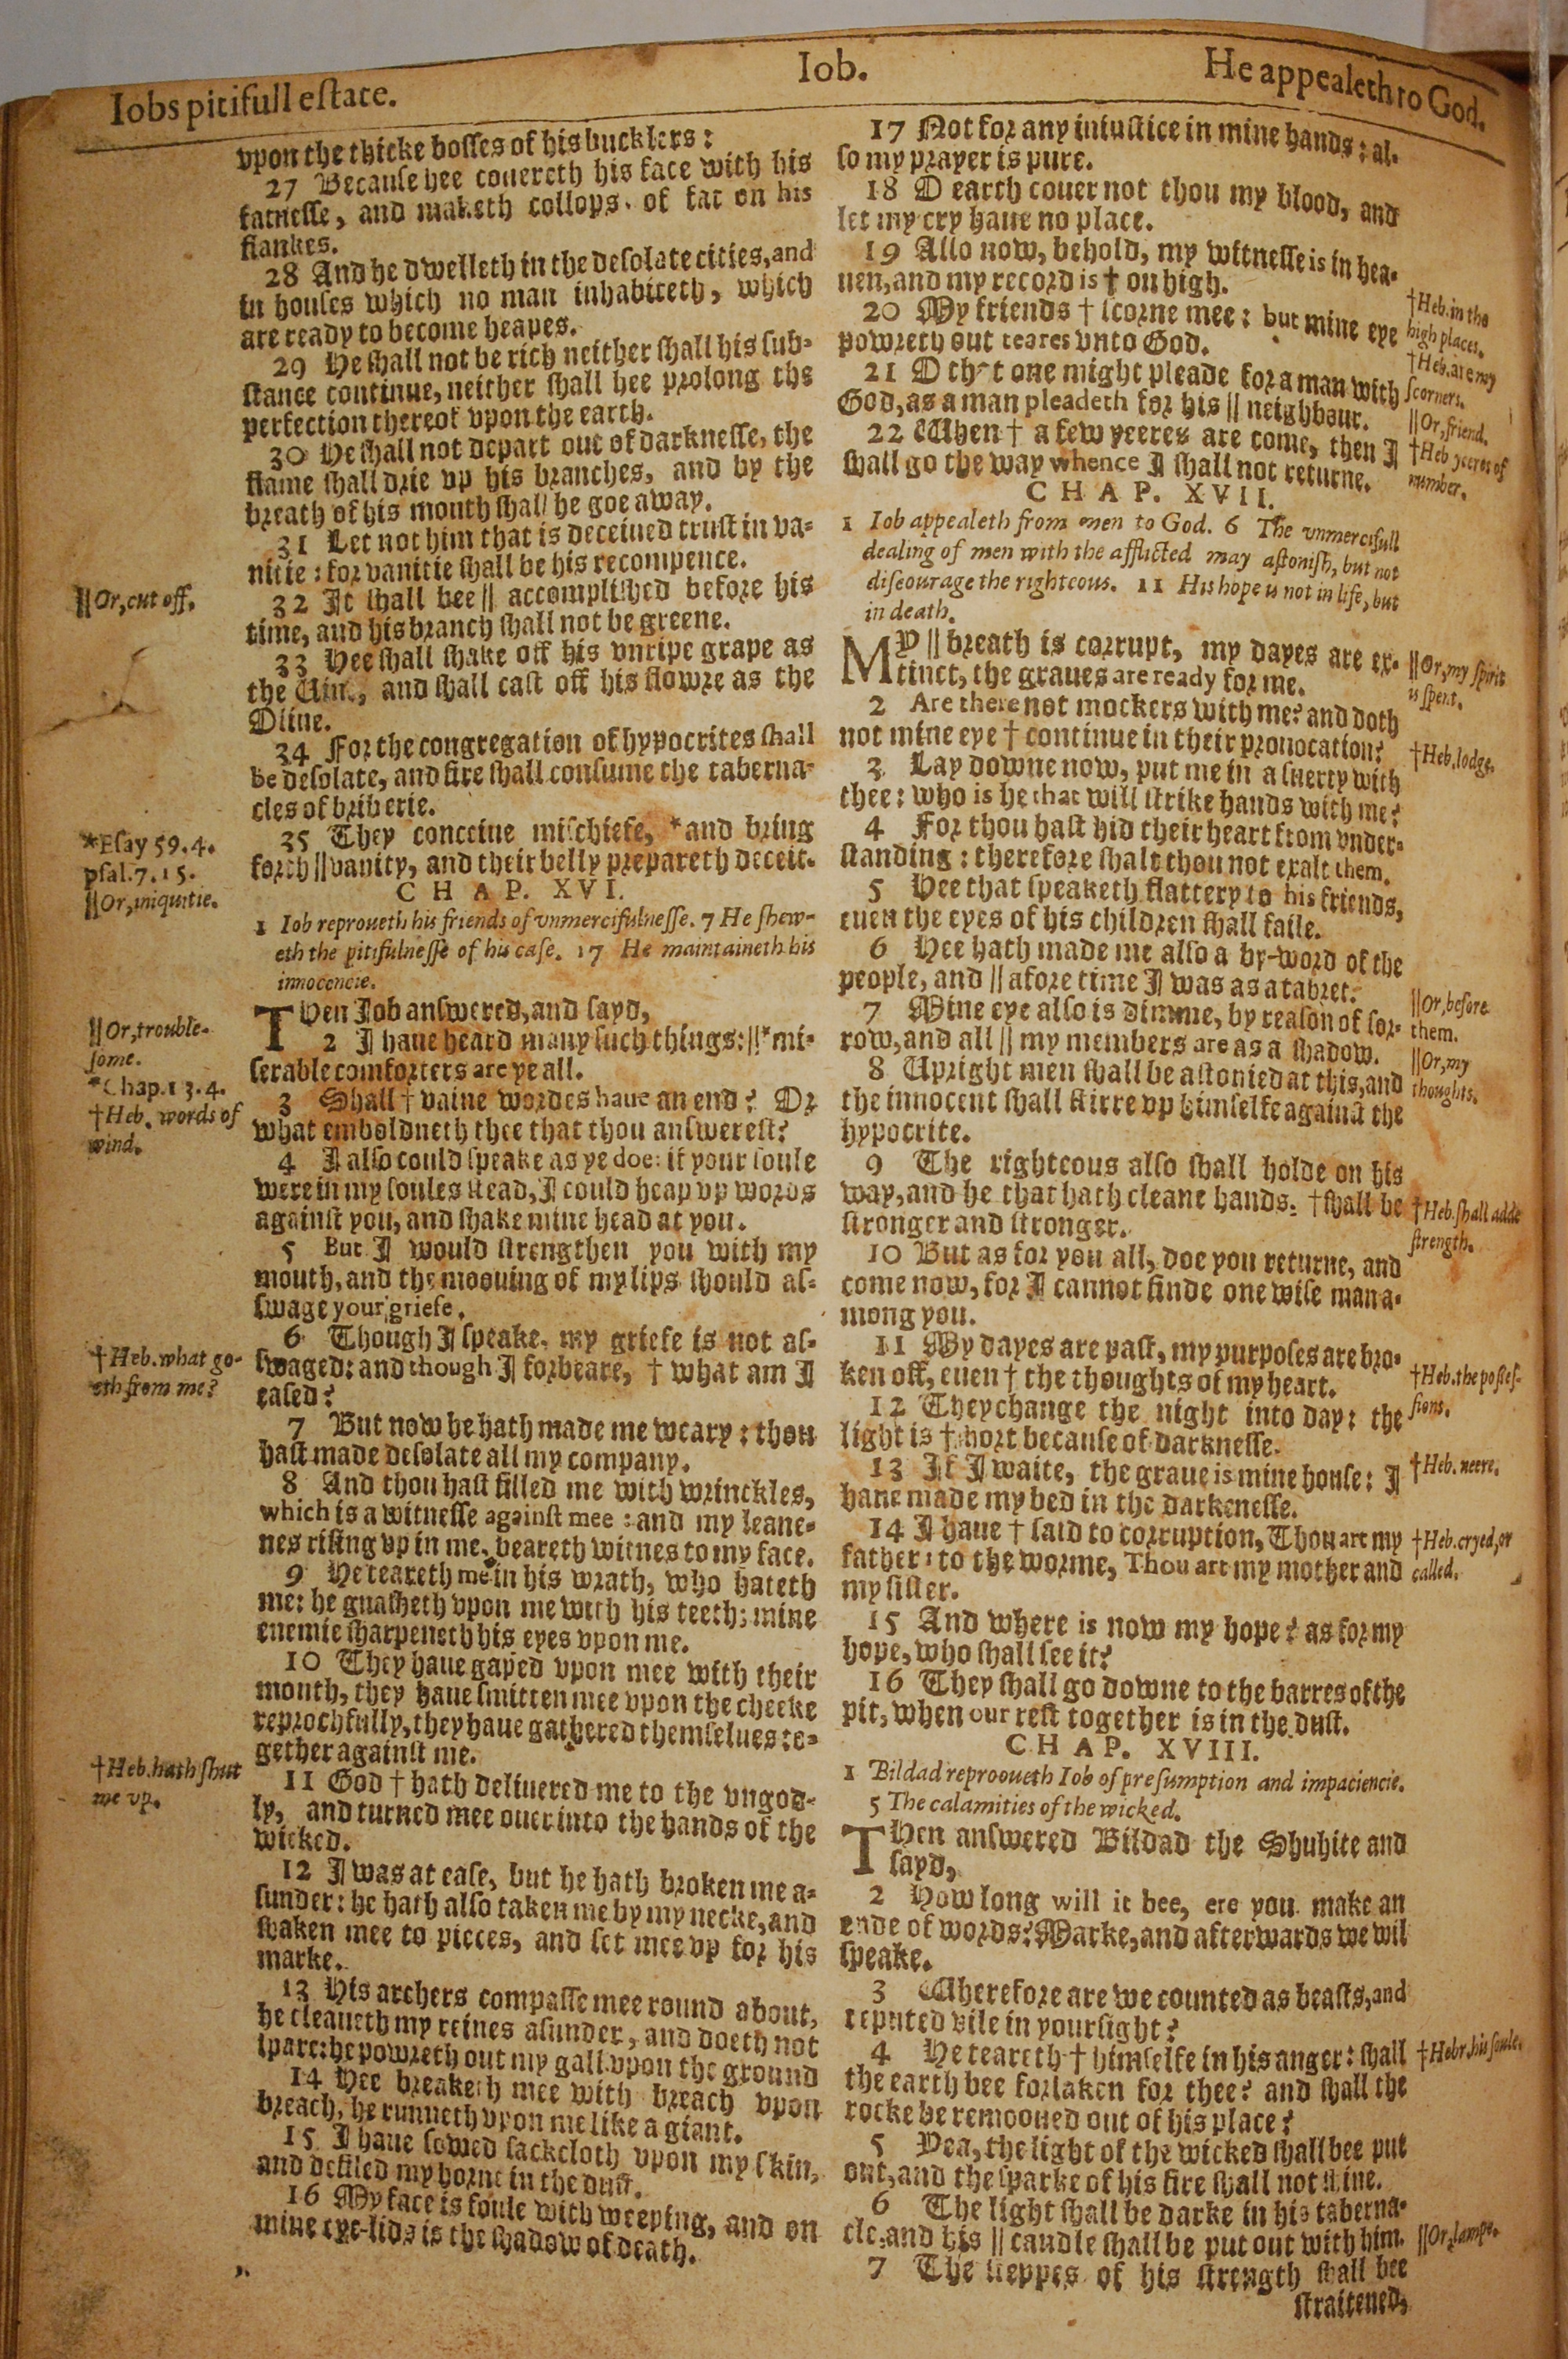 Iobs pitifull estate.
Iob.
He appealeth to God.
vpon the thicke bosses of his bucklers:
27 Because hee couereth his face with his
fatnesse, and maketh collops of fat on his
flankes.
28 And he dwelleth in the desolate cities, and
in houses which no man inhabiteth, which
are ready to become heapes.
29 He shall not be rich neither shall his sub-
stance continue, neither shall hee prolong the
perfection thereof vpon the earth.
30 He shall not depart out of darknesse, the
flame shall drie vp his branches, and by the
breath of his mouth shall he goe away.
31 Let not him that is deceiued trust in va-
nitie: for vanitie shall be his recompence.
||Or, cut off.
32 It shall bee || accomplished before his
time, and his branch shall not be greene.
33 Hee shall shake off his vnripe grape as
the Vine, and shall cast off his flowre as the
Oliue.
34 For the congregation of hypocrites shall
be desolate, and fire shall consume the taberna-
cles of briberie.
*Esay 59.4.
psal.7.15.
||Or, iniquitie.
35 They conceiue mischiefe, *and bring
forth || vanity, and their belly prepareth deceit.
CHAP. XVI.
1 Iob reproueth his friends of vnmercifulnesse. 7 He shew-
eth the pitifulnesse of his case. 17 He maintaineth his
innocencie.
THen Iob answered, and sayd,
||Or, trouble-
some.
*Chap.13.4.
†Heb. words of
wind.
2 I haue heard many such things: ||*mi-
serable comforters are ye all.
3 Shall † vaine wordes haue an end? Or
what emboldneth thee that thou answerest?
4 I also could speake as ye doe: if your soule
were in my soules stead, I could heap vp words
against you, and shake mine head at you.
5 But I would strengthen you with my
mouth, and the moouing of my lips should as-
swage your griefe.
6 Though I speake, my griefe is not as-
swaged: and though I forbeare, † what am I
eased?
†Heb. what go-
eth from me?
7 But now he hath made me weary: thou
hast made desolate all my company.
8 And thou hast filled me with wrinckles,
which is a witnesse against mee: and my leane-
nes rising vp in me, beareth witnes to my face.
9 He teareth me in his wrath, who hateth
me: he gnasheth vpon me with his teeth; mine
enemie sharpeneth his eyes vpon me.
10 They haue gaped vpon mee with their
mouth, they haue smitten mee vpon the cheeke
reprochfully, they haue gathered themselues to-
gether against me.
†Heb. hath shut
me vp.
11 God † hath deliuered me to the vngod-
ly, and turned mee ouer into the hands of the
wicked.
12 I was at ease, but he hath broken me a-
sunder: he hath also taken me by my necke, and
shaken mee to pieces, and set mee vp for his
marke.
13 His archers compasse mee round about,
he cleaueth my reines asunder, and doeth not
spare: he powreth out my gall vpon the ground
14 Hee breaketh mee with breach vpon
breach, he runneth vpon me like a giant.
15 I haue sowed sackcloth vpon my skin,
and defiled my horne in the dust.
16 My face is foule with weeping, and on
mine eye-lids is the shadow of death.
17 Not for any iniustice in mine hands: al-
so my prayer is pure.
18 O earth couer not thou my blood, and
let my cry haue no place.
19 Also now, behold, my witnesse is in hea-
uen, and my record is † on high.
†Heb. in the
high places.
20 My friends † scorne mee: but mine eye
powreth out teares vnto God.
†Heb. are my
scorners.
21 O that one might pleade for a man with
God, as a man pleadeth for his || neighbour.
||Or, friend.
22 When † a few yeeres are come, then I
shall go the way whence I shall not returne.
†Heb yeeres of
number.
CHAP. XVII.
1 Iob appealeth from men to God. 6 The vnmercifull
dealing of men with the afflicted may astonish, but not
discourage the righteous. 11 His hope is not in life, but
in death.
MY || breath is corrupt, my dayes are ex-
tinct, the graues are ready for me.
||Or, my spirit
is spent.
2 Are there not mockers with me? and doth
not mine eye † continue in their prouocation?
†Heb. lodge.
3 Lay downe now, put me in a suerty with
thee: who is he that will strike hands with me?
4 For thou hast hid their heart from vnder-
standing: therefore shalt thou not exalt them.
5 Hee that speaketh flattery to his friends,
euen the eyes of his children shall faile.
6 Hee hath made me also a by-word of the
people, and || afore time I was as a tabret.
||Or, before
them.
7 Mine eye also is dimme, by reason of sor-
row, and all || my members are as a shadow.
||Or, my
thoughts.
8 Vpright men shall be astonied at this, and
the innocent shall stirre vp himselfe against the
hypocrite.
9 The righteous also shall holde on his
way, and he that hath cleane hands. † shall be
stronger and stronger.
†Heb. shall adde
strength.
10 But as for you all, doe you returne, and
come now, for I cannot finde one wise man a-
mong you.
11 My dayes are past, my purposes are bro-
ken off, euen † the thoughts of my heart.
†Heb. the posses-
sions.
12 They change the night into day: the
light is † short because of darknesse.
†Heb. neere.
13 If I waite, the graue is mine house: I
haue made my bed in the darkenesse.
14 I haue † said to corruption, Thou art my
father: to the worme, Thou art my mother and
my sister.
†Heb. cryed, or
called.
15 And where is now my hope? as for my
hope, who shall see it?
16 They shall go downe to the barres of the
pit, when our rest together is in the dust.
CHAP. XVIII.
1 Bildad reprooueth Iob of presumption and impaciencie.
5 The calamities of the wicked.
THen answered Bildad the Shuhite and
sayd,
2 How long will it bee, ere you make an
ende of words? Marke, and afterwards we wil
speake.
3 Wherefore are we counted as beasts, and
reputed vile in your sight?
4 He teareth † himselfe in his anger: shall
the earth bee forsaken for thee? and shall the
rocke be remooued out of his place?
†Hebr. his soule.
5 Yea, the light of the wicked shall bee put
out, and the sparke of his fire shall not shine.
6 The light shall be darke in his taberna-
cle, and his || candle shall be put out with him.
||Or, lampe.
7 The steppes of his strength shall bee
straitened,